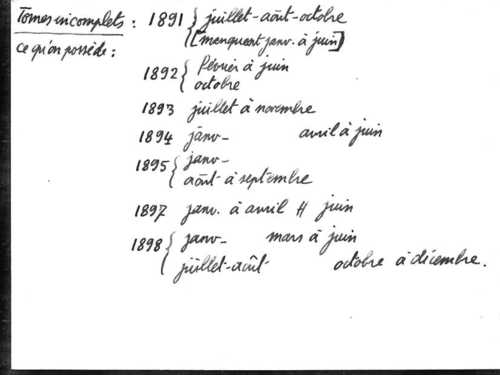 Tomes incomplets : 1891 { juillet-août-octobre
ce qu'on possède : [manquent janv. à juin]
1892 { février à juin
octobre
1893 juillet à novembre
1894 janv- avril à juin
1895 { janv-
août à septembre
1897 janv. à avril H juin
1898 { janv- mars à juin
juillet-août- octobre à décembre.